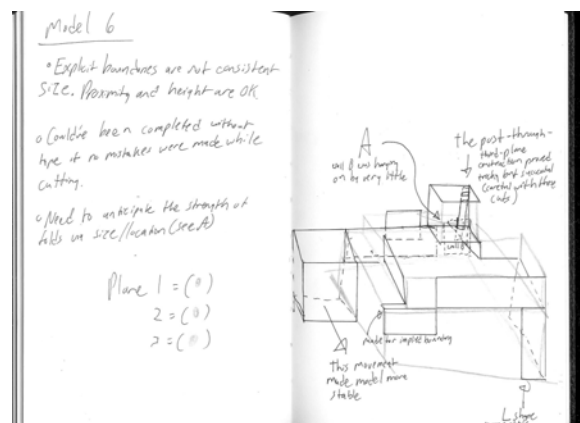 Model 6
• Explicit boundaries are not consistent
size. Proximity and height are OK.
• Could've been completed without
tape if no mistakes were made while
cutting.
• Need to anticipate the strength of
folds in size/location (see A)
Plane 1 = (0)
2 = (0)
3 = (0)
A
wall B was hanging
on by very little
the post-through-
third-plane
construction proved
tricky but successful
(careful with these
cuts)
wall B
made for implied boundary
this movement
made model more
stable
L shape